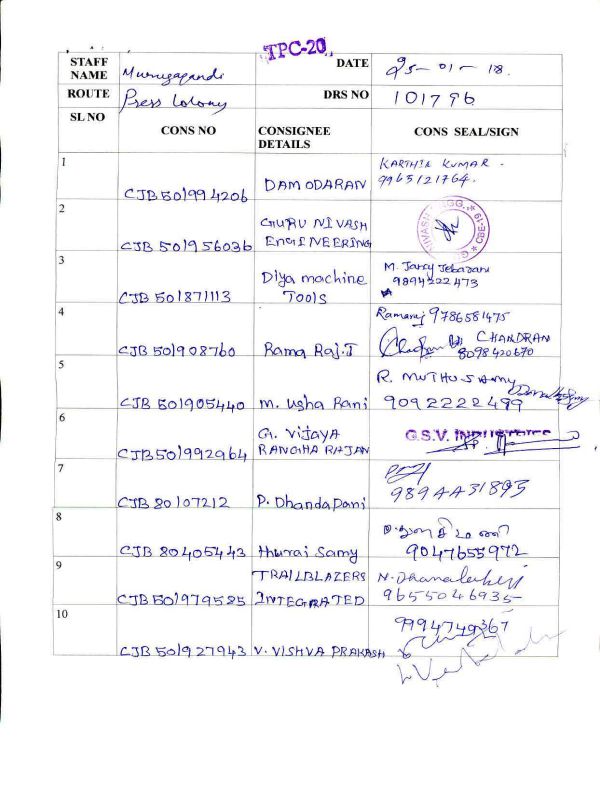 TPC-20
STAFF NAME Murugagandi DATE 25-01-18.
ROUTE Press Colony DRS NO 101796
SL NO CONS NO CONSIGNEE DETAILS CONS SEAL/SIGN
1 CJB 501994206 DAMODARAN KARTHIK KUMAR - 9965121764.
2 CJB 501956036 GURU NIVASH ENGINEERING CBE-19
3 CJB 501871113 Diya machine TOOLS M. Jancy Jebarani 9894222473
4 CJB 501908760 Rama Raj.T Ramaraj 9786581475
CHANDRAN 8098420670
5 CJB 501905440 M. Usha Rani R. MUTHUSAMY 9092222499
6 CJB 501992964 G. VIJAYA RANGHA RAJAN G.S.V. INDUSTRIES
7 CJB 80107212 P. Dhandapani 9894431895
8 CJB 80405443 Thurai Samy 9047655972
9 CJB 501979525 TRAILBLAZERS INTEGRATED N. Dhanalakshmi 9655046935
10 CJB 501927943 V. VISHVA PRAKASH 9994749367